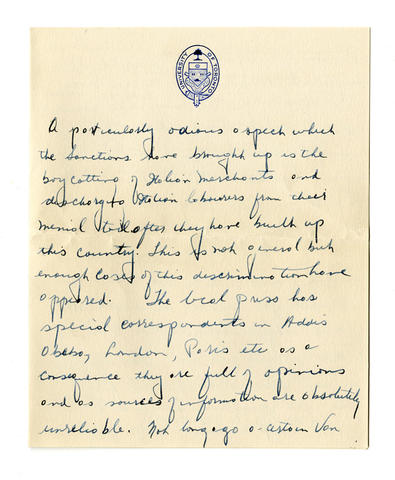 UNIVERSITY OF TORONTO
A particularly odious aspect which
the sanctions have brought up is the
boycotting of Italian merchants and
discharg of Italian labourers from their
menial toil after they have built up
this country. This is not general but
enough cases of this discrimination have
appeared. The local press has
special correspondents in Addis
Ababa, London, Paris etc as a
consequence they are full of opinions
and as sources of information are absolutely
unreliable. Not long ago a certain Van